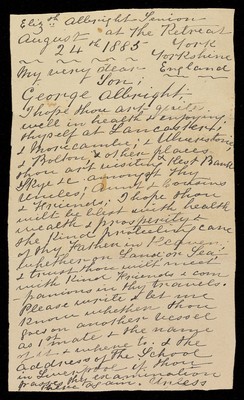 Eliz.th Albright Senior
August at the Retreat
24th 1885 York
Yorkshire
My very dear England
Son,
George Albright
I hope thou art quite
well in health & enjoying
thyself at Lancaster,
& Morecambe; & Ulverstone,
& Bolton, & other places
thou art visiting
amongst thy
Uncles, Aunts & Cousins
& Friends; I hope thou
wilt be blest with health
wealth & prosperity &
the kind protecting care
of thy Father in Heaven;
whether on Land or Sea;
I trust thou wilt meet
with kind Friends & com
panions in thy travels.
Please write & let me
know whether thou
goes on another vessel
as 1st mate & the name
of it & where to. & the
address of the School
in Liverpool if thou
passes the examination
again. Unless